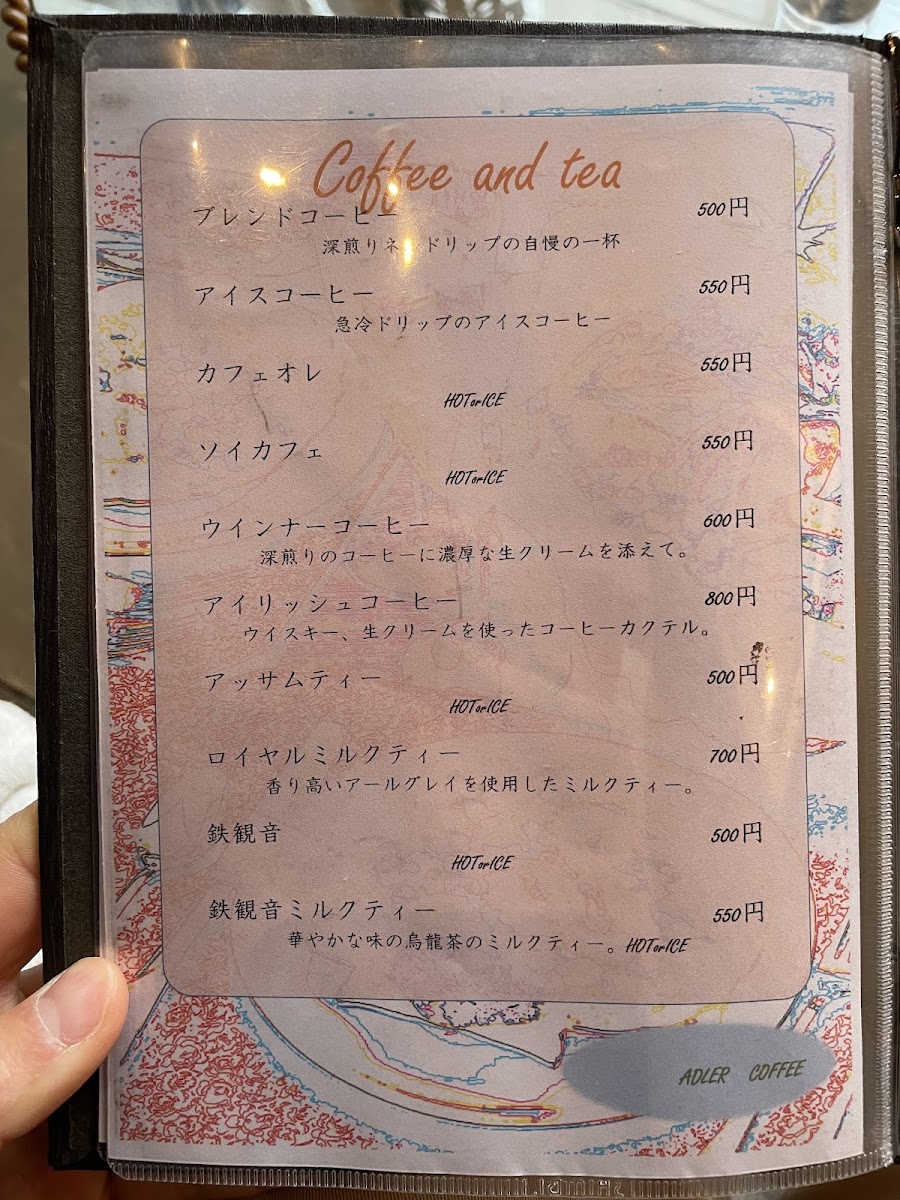 Coffee and tea
ブレンドコーヒー 500円
深煎りネルドリップの自慢の一杯
アイスコーヒー 550円
急冷ドリップのアイスコーヒー
カフェオレ 550円
HOTorICE
ソイカフェ 550円
HOTorICE
ウインナーコーヒー 600円
深煎りのコーヒーに濃厚な生クリームを添えて。
アイリッシュコーヒー 800円
ウイスキー、生クリームを使ったコーヒーカクテル。
アッサムティー 500円
HOTorICE
ロイヤルミルクティー 700円
香り高いアールグレイを使用したミルクティー。
鉄観音 500円
HOTorICE
鉄観音ミルクティー 550円
華やかな味の烏龍茶のミルクティー。HOTorICE
ADLER COFFEE